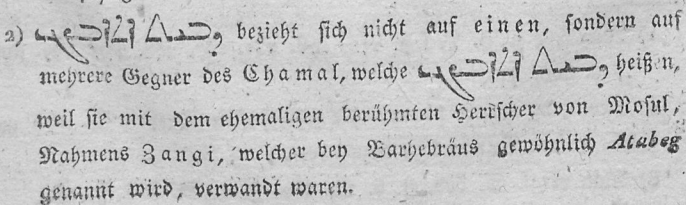 2) bezieht sich nicht auf einen, sondern auf
mehrere Gegner des Chamal, welche heißen,
weil sie mit dem ehemaligen berühmten Herrscher von Mosul,
Nahmens Zangi, welcher bey Barhebräus gewöhnlich Atabeg
genannt wird, verwandt waren.